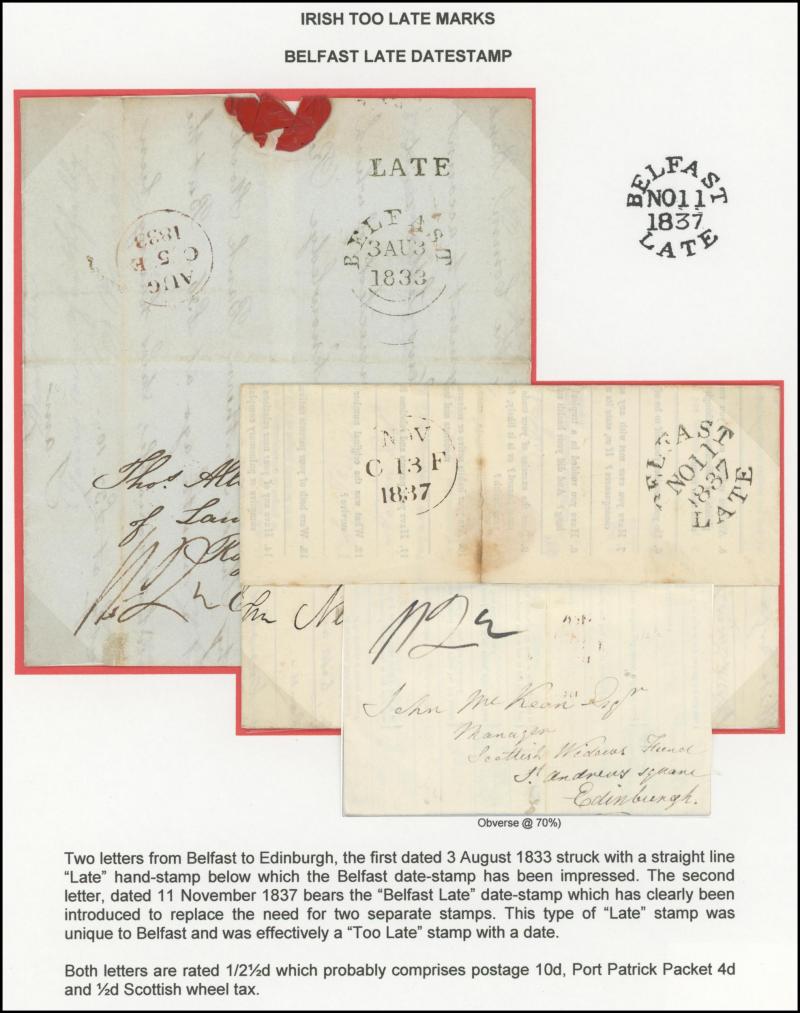 IRISH TOO LATE MARKS
BELFAST LATE DATESTAMP
LATE
BELFAST
3AU3
1833
AUG
C 5 E
1833
BELFAST
NO11
1837
LATE
NOV
C 13 F
1837
BELFAST
NO11
1837
LATE
Thos.
of
John Mc Kean Esqr
Manager
Scottish Widows Fund
St. Andrews Square
Edinburgh.
Obverse @ 70%)
Two letters from Belfast to Edinburgh, the first dated 3 August 1833 struck with a straight line
“Late” hand-stamp below which the Belfast date-stamp has been impressed. The second
letter, dated 11 November 1837 bears the “Belfast Late” date-stamp which has clearly been
introduced to replace the need for two separate stamps. This type of “Late” stamp was
unique to Belfast and was effectively a “Too Late” stamp with a date.
Both letters are rated 1/2½d which probably comprises postage 10d, Port Patrick Packet 4d
and ½d Scottish wheel tax.